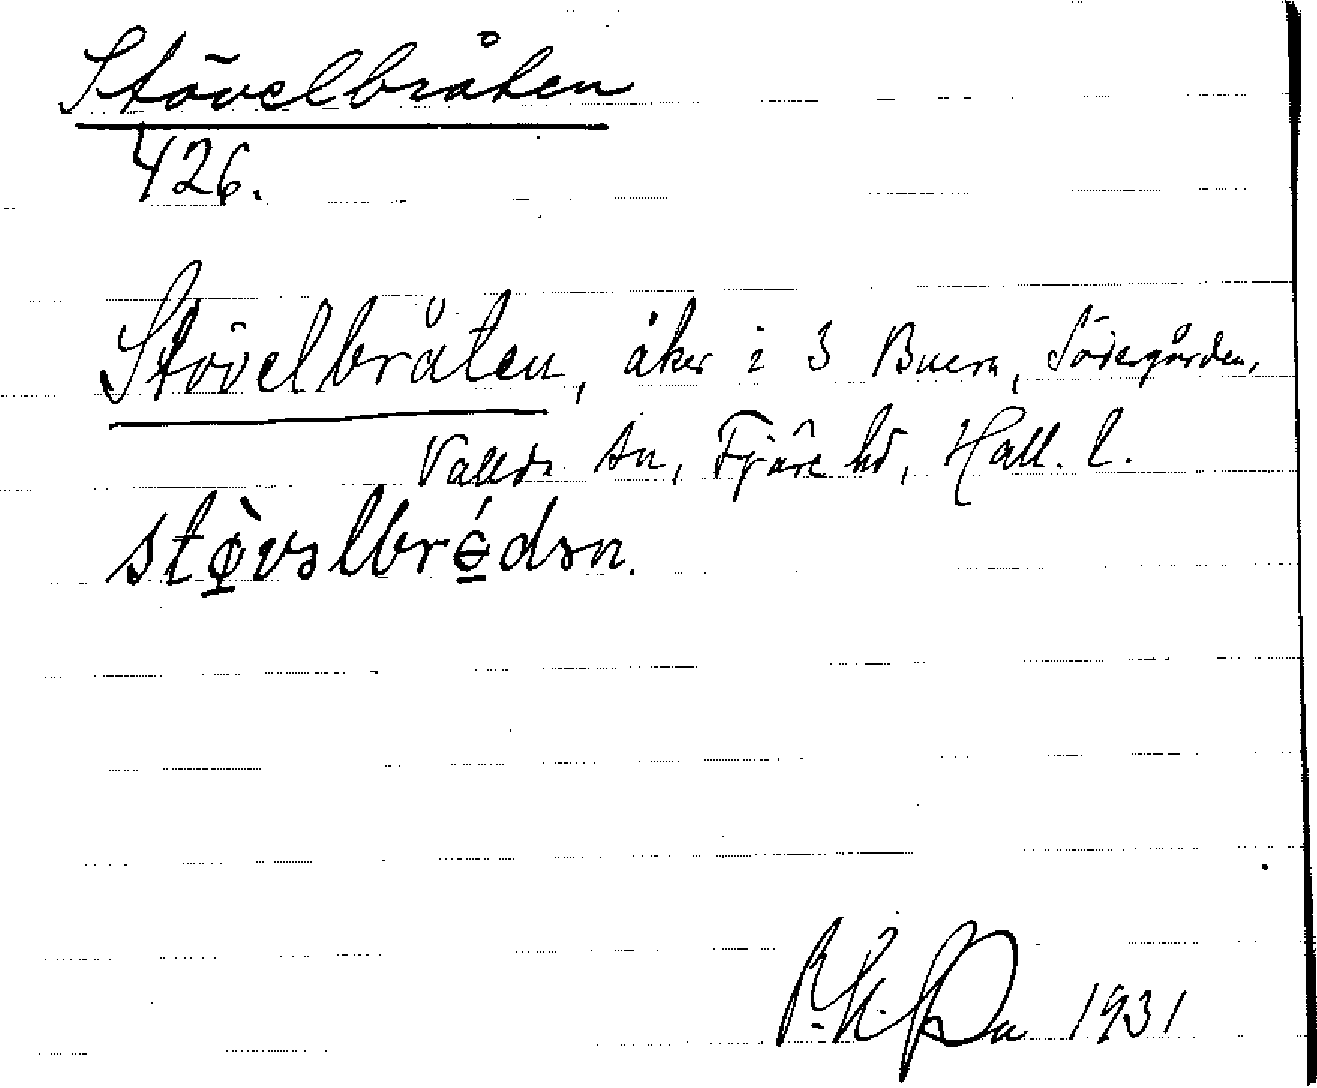 Stövelbråten
426.
Stövelbråten, åker i S Buera, Södergården,
Vallda sn, Fjäre hd, Hall. l.
stø̀vəlbrødən.
1931